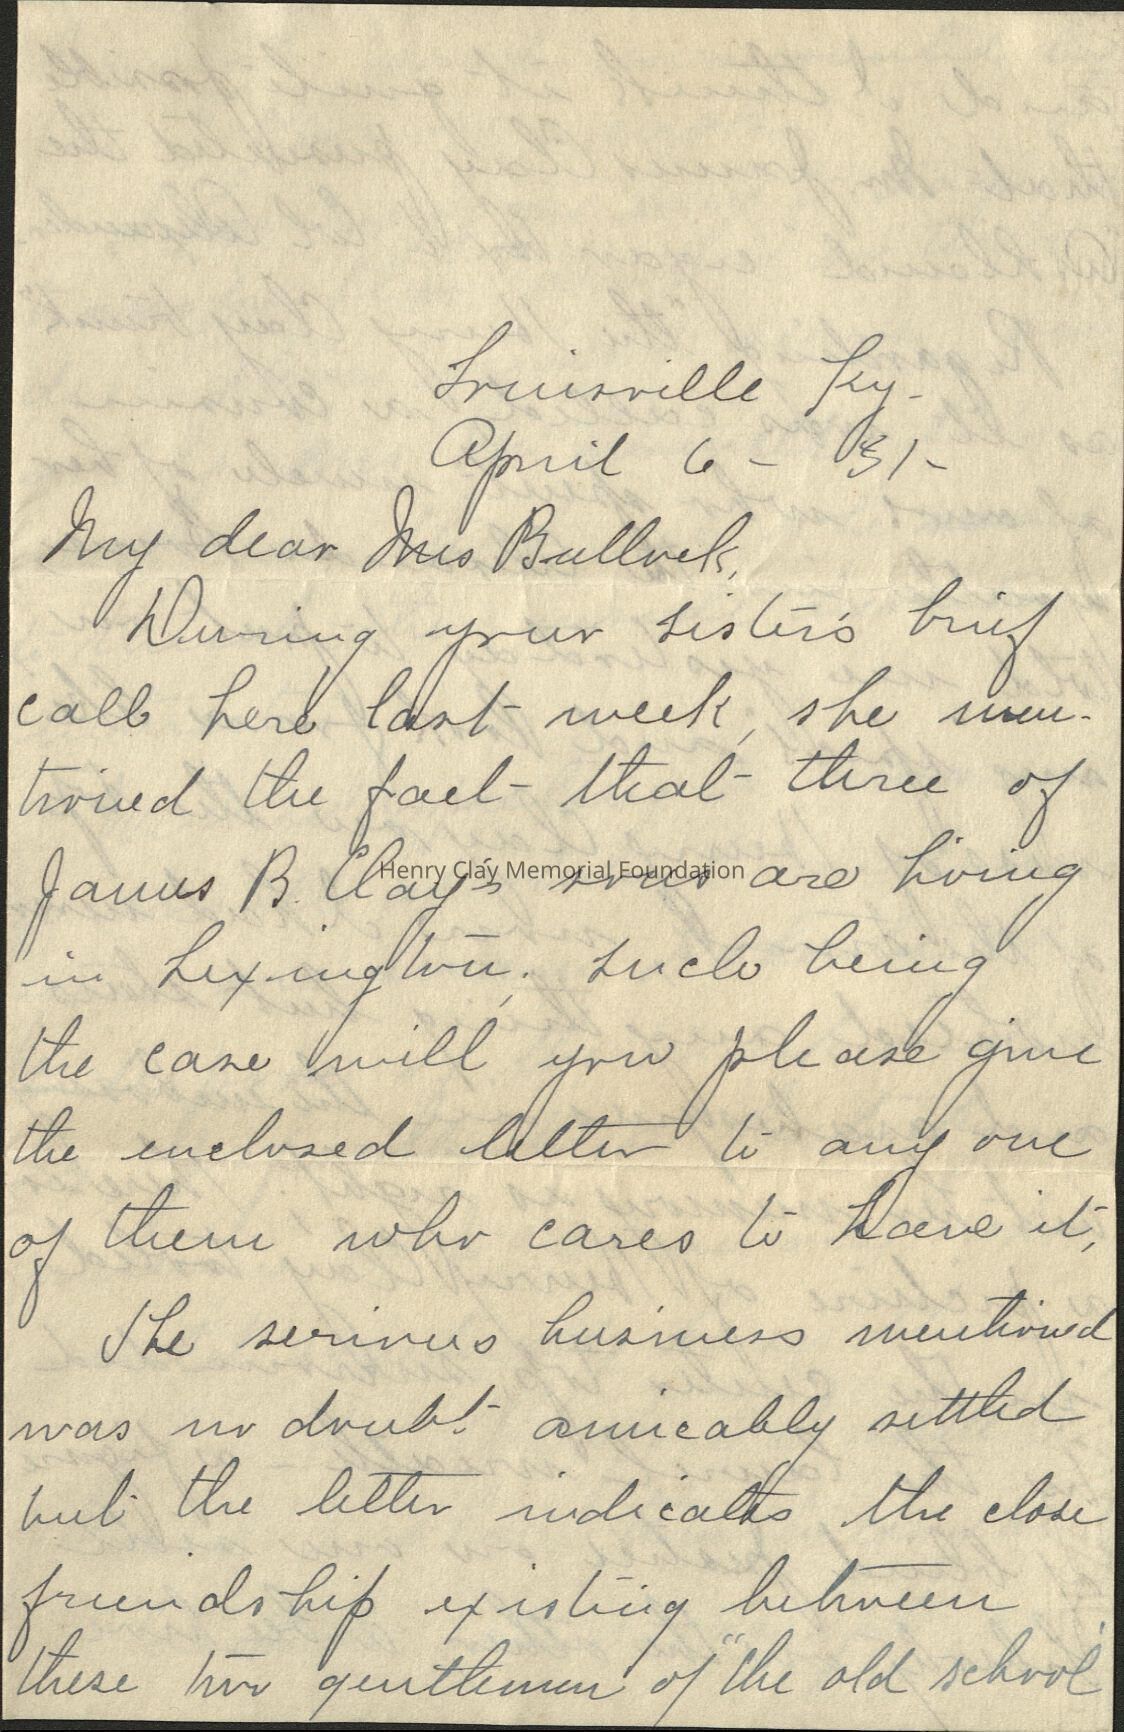 Louisville Ky.
April 6 - 31 -
My dear Mrs Bullock,
During your sister's brief
call here last week, she men-
tioned the fact that three of
James B. Clay's sons are living
Henry Clay Memorial Foundation
in Lexington. Such being
the case will you please give
the enclosed letter to any one
of them who cares to have it.
The serious business mentioned
was no doubt amicably settled
but the letter indicates the close
friendship existing between
these two gentlemen of "the old school"